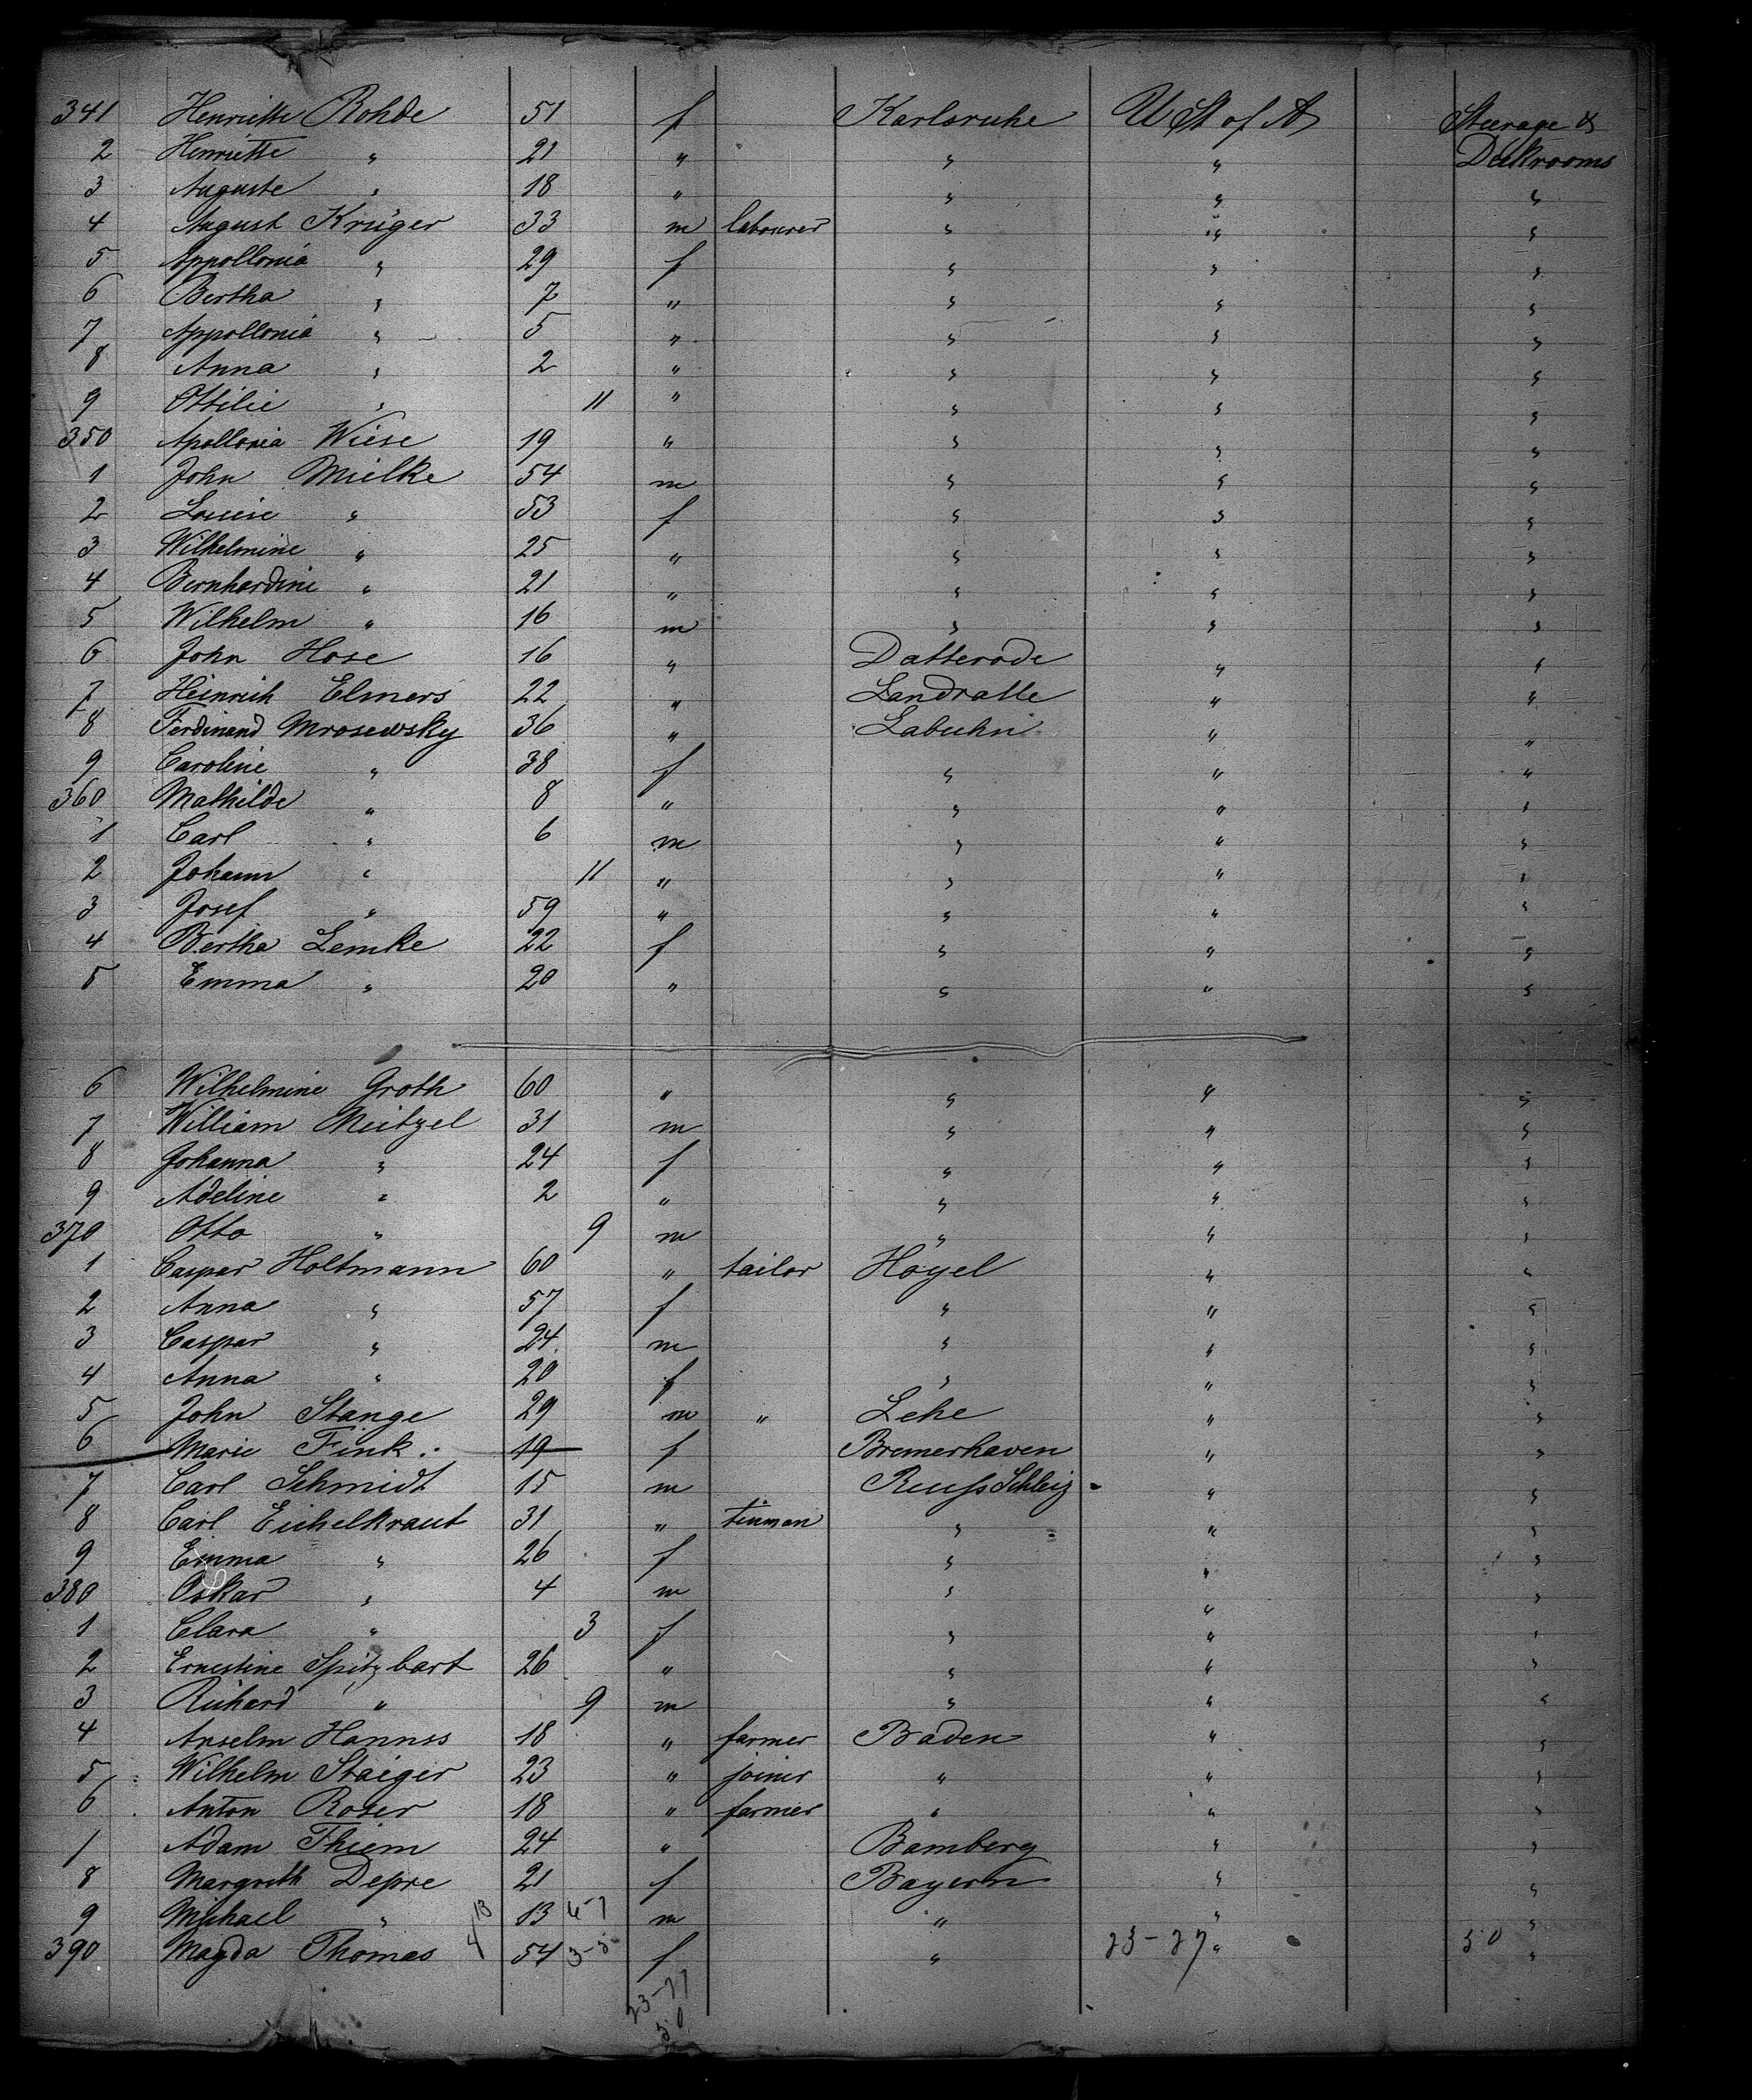 341 Henriette Rohde 51 f Karlsruhe U St of A Steerage &
2 Henriette " 21 " " " Deckrooms
3 Auguste " 18 " " " "
4 August Krüger 33 m labourer " " "
5 Appollonia " 29 f " " "
6 Bertha " 7 " " " "
7 Appollonia " 5 " " " "
8 Anna " 2 " " " "
9 Ottilie " 11 " " " "
350 Apollonia Wiese 19 " " " "
1 John Mielke 54 m " " "
2 Louise " 53 f " " "
3 Wilhelmine " 25 " " " "
4 Bernhardine " 21 " " " "
5 Wilhelm " 16 m " " "
6 John Hose 16 " Datterode " "
7 Heinrich Elmers 22 " Landratte " "
8 Ferdinand Mrosewsky 36 " Labuhn " "
9 Caroline " 38 f " " "
360 Mathilde " 8 " " " "
1 Carl " 6 m " " "
2 Johann " 11 " " " "
3 Josef " 59 " " " "
4 Bertha Lemke 22 f " " "
5 Emma " 20 " " " "
6 Wilhelmine Groth 60 " " " "
7 William Meitzel 31 m " " "
8 Johanna " 24 f " " "
9 Adeline " 2 " " " "
370 Otto " 9 m " " "
1 Caspar Holtmann 60 " tailor Hoyel " "
2 Anna " 57 f " " "
3 Caspar " 24 m " " "
4 Anna " 20 f " " "
5 John Stange 29 m " Lehe " "
6 Marie Fink 19 f Bremerhaven " "
7 Carl Schmidt 15 m Reuss Schleiz " "
8 Carl Eichelkraut 31 " tinman " " "
9 Emma " 26 f " " "
380 Oskar " 4 m " " "
1 Clara " 3 f " " "
2 Ernestine Spitzbart 26 " " " "
3 Richard " 9 m " " "
4 Anselm Hannss 18 " farmer Baden " "
5 Wilhelm Staiger 23 " joiner " " "
6 Anton Roser 18 " farmer " " "
7 Adam Thiem 24 " Bamberg " "
8 Margreth Depre 21 f Bayern " "
9 Michael " 13 m " " "
390 Magda Thomas 54 3-5 f " 23-27 " 50 "
23-27
50